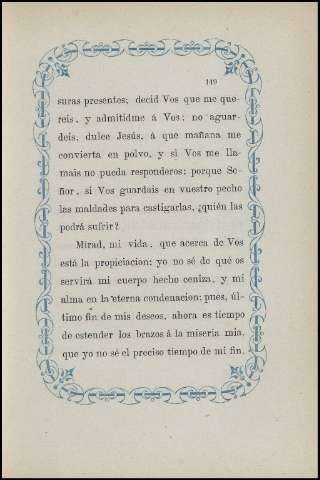 149
suras presentes; decid Vos que me que-
reis, y admitidme á Vos; no aguar-
deis, dulce Jesús, á que mañana me
convierta en polvo, y si Vos me lla-
mais no pueda responderos; porque Se-
ñor, si Vos guardais en vuestro pecho
las maldades para castigarlas, ¿quién las
podrá sufrir?
Mirad, mi vida, que acerca de Vos
está la propiciacion; yo no sé de qué os
servirá mi cuerpo hecho ceniza, y mi
alma en la eterna condenacion; pues, úl-
timo fin de mis deseos, ahora es tiempo
de estender los brazos á la miseria mia,
que yo no sé el preciso tiempo de mi fin,